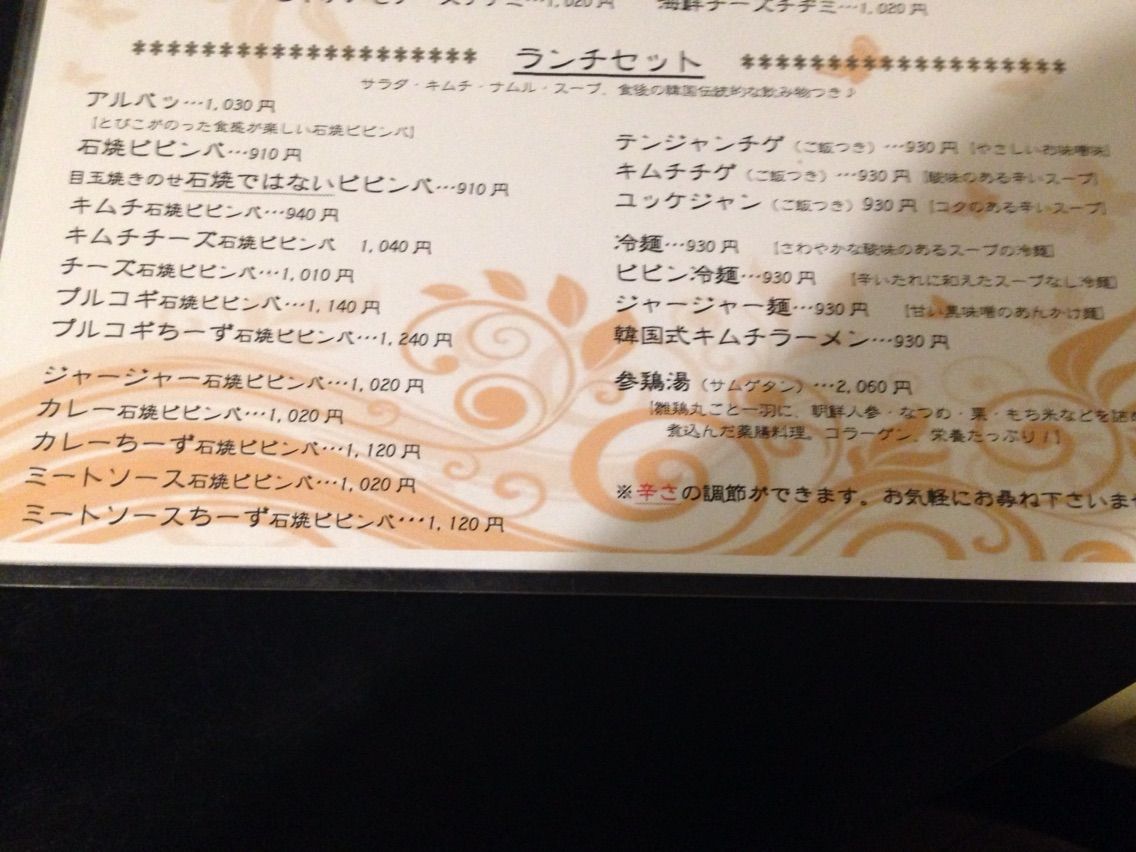 チーズチヂミ…1,020円 海鮮チーズチヂミ…1,020円
******************** ランチセット *******************
サラダ・キムチ・ナムル・スープ、食後の韓国伝統的な飲み物つき♪
アルバッ…1,030円
[とびこがのった食感が楽しい石焼ビビンバ]
石焼ビビンバ…910円
目玉焼きのせ石焼ではないビビンバ…910円
キムチ石焼ビビンバ…940円
キムチチーズ石焼ビビンバ 1,040円
チーズ石焼ビビンバ…1,010円
プルコギ石焼ビビンバ…1,140円
プルコギちーず石焼ビビンバ…1,240円
ジャージャー石焼ビビンバ…1,020円
カレー石焼ビビンバ…1,020円
カレーちーず石焼ビビンバ…1,120円
ミートソース石焼ビビンバ…1,020円
ミートソースちーず石焼ビビンバ…1,120円
テンジャンチゲ（ご飯つき）…930円 [やさしいお味噌味]
キムチチゲ（ご飯つき）…930円 [酸味のある辛いスープ]
ユッケジャン（ご飯つき）930円 [コクのある辛いスープ]
冷麺…930円 [さわやかな酸味のあるスープの冷麺]
ビビン冷麺…930円 [辛いたれに和えたスープなし冷麺]
ジャージャー麺…930円 [甘い黒味噌のあんかけ麺]
韓国式キムチラーメン…930円
参鶏湯（サムゲタン）…2,060円
[雛鶏丸ごと一羽に、朝鮮人参・なつめ・栗・もち米などを詰め
煮込んだ薬膳料理。コラーゲン、栄養たっぷり！]
※辛さの調節ができます。お気軽にお尋ね下さいませ